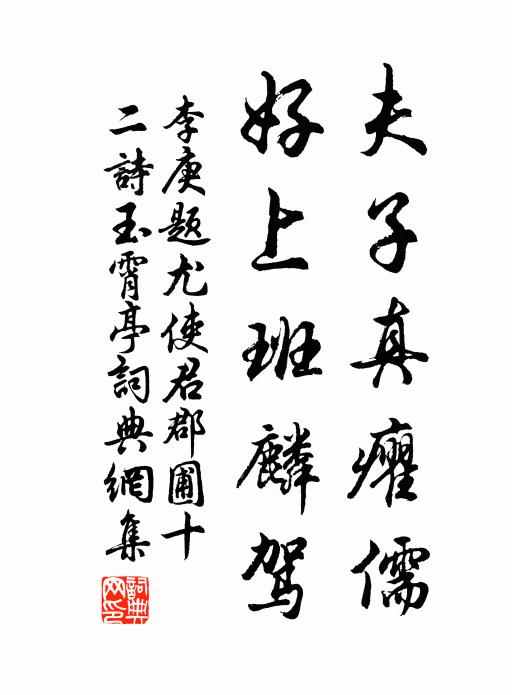 夫子真癯儒
好上班麟驾
李庚题尤使君郡圃十
二詩玉霄亭詞典網集
詞典
网印